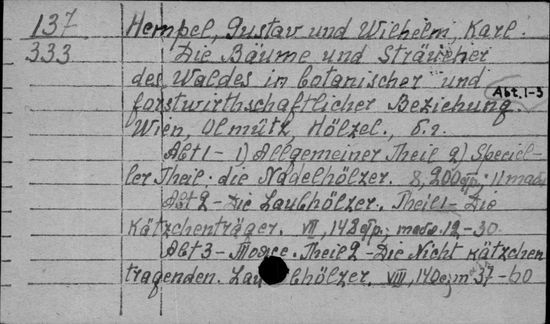 137 Hempel, Gustav und Wilhelm, Karl.
333 Die Bäume und Sträucher
des Waldes in botanischer und
Abt. 1-3
forstwirthschaftlicher Beziehung.
Wien, Olmütz, Hölzel., б.г.
Abt 1 - 1) Allgemeiner Theil 2) Speciel-
ler Theil. die Nadelhölzer. 8, 200 стр.; 11 табл
Abt 2 - Die Laubhölzer. Theil 1 - Die
Kätzchenträger. VII, 142 стр; табл. 12-30.
Abt 3 - Тоже. Theil 2 - Die Nicht Kätzchen
tragenden. Laubhölzer. VIII, 140 с; т 37-60